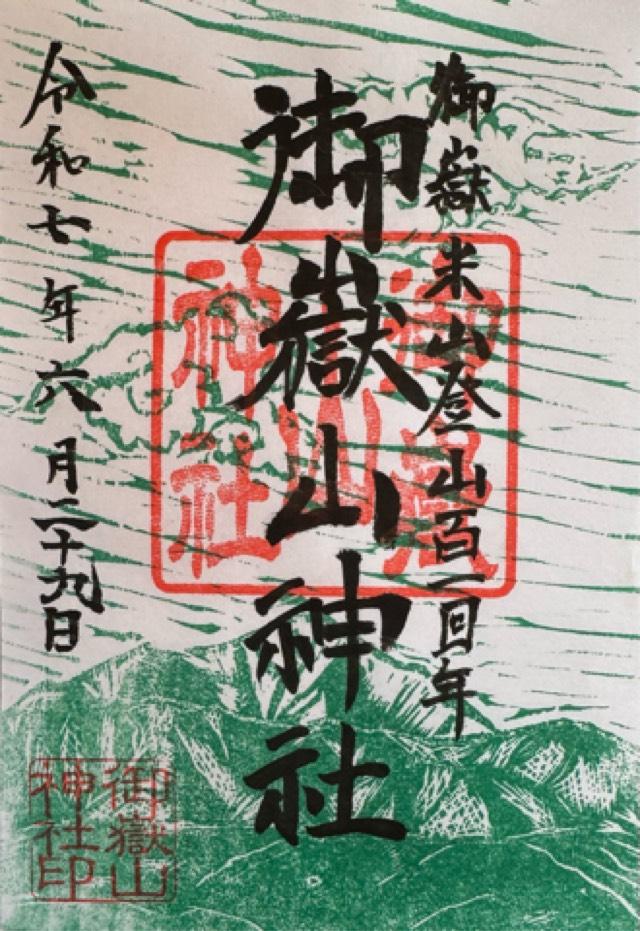 御嶽米山登山百一回年
御嶽山神社
令和七年六月二十九日
御嶽山神社
御嶽山
神社印